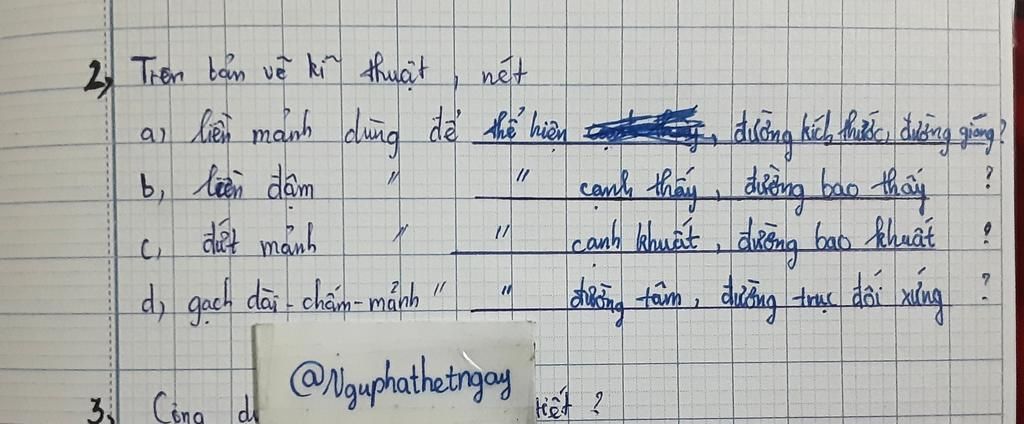 2, Trên bản vẽ kĩ thuật, nét
a, liền mảnh dùng để thể hiện , đường kích thước, đường gióng?
b, liền đậm " " cạnh thấy, đường bao thấy ?
c, đứt mảnh " " cạnh khuất, đường bao khuất ?
d, gạch dài - chấm - mảnh " " đường tâm, đường trục đối xứng ?
@Nguphathetngay
3, Công d tiết ?